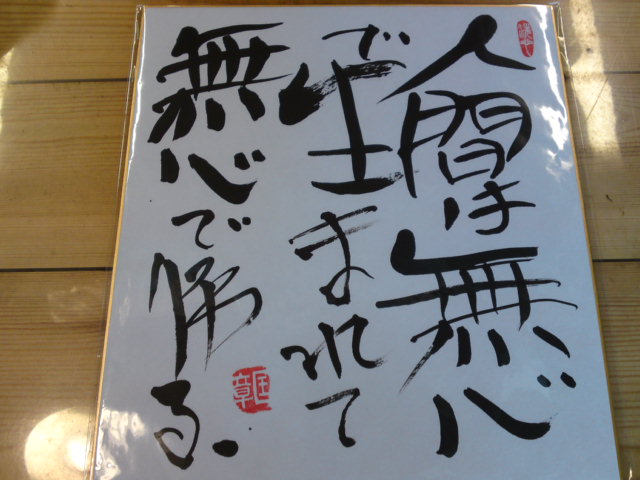 人間は無心
で生まれて
無心で帰る